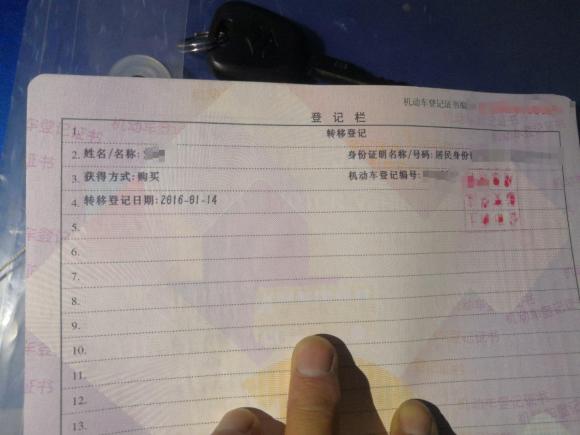 机动车登记证书编
登记栏
1. 转移登记
2. 姓名/名称: 身份证明名称/号码:居民身份
3. 获得方式:购买 机动车登记编号:
4. 转移登记日期:2016-01-14
5.
6.
7.
8.
9.
10.
11.
12.
13.